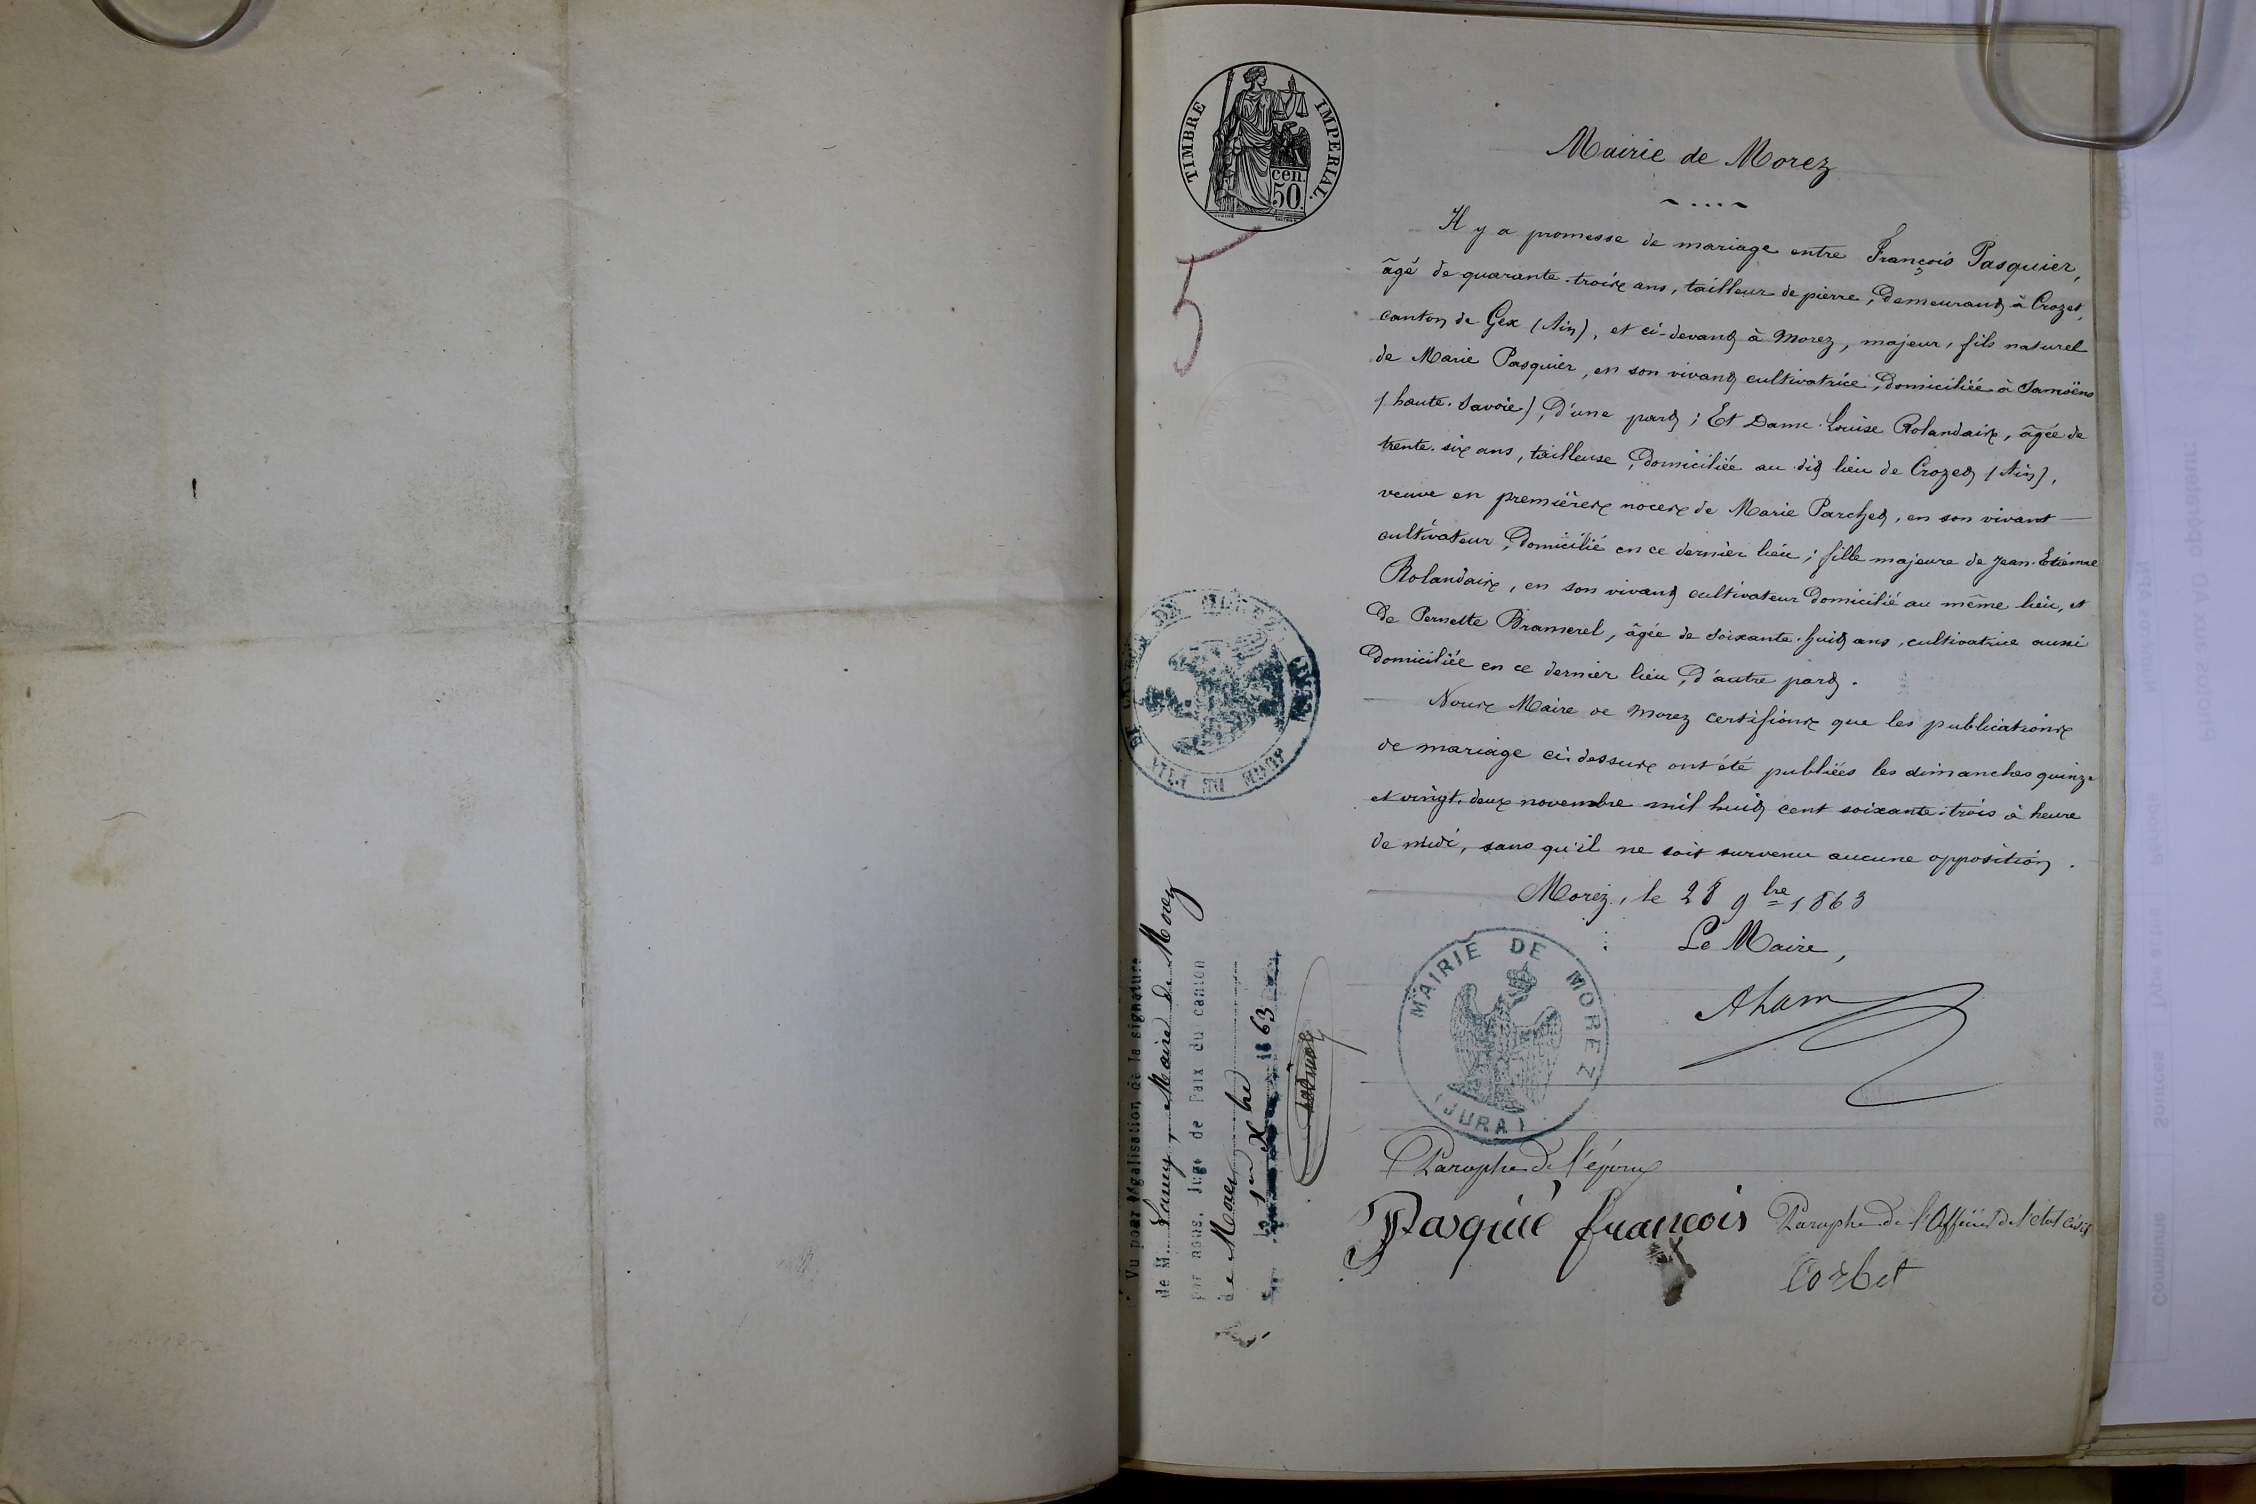 TIMBRE IMPERIAL.
cen.
50.
5
Mairie de Morez
Il y a promesse de mariage entre François Pasquier,
âgé de quarante-trois ans, tailleur de pierre, demeurant à Crozet,
canton de Gex (Ain), et ci-devant à Morez, majeur, fils naturel
de Marie Pasquier, en son vivant cultivatrice, domiciliée à Samoëns
(haute-Savoie), d'une part; Et Dame Louise Rolandaix, âgée de
trente-six ans, tailleuse, domiciliée au dit lieu de Crozet (Ain),
veuve en premières noces de Marie Parchet, en son vivant
cultivateur, domicilié en ce dernier lieu; fille majeure de Jean-Etienne
Rolandaix, en son vivant cultivateur domicilié au même lieu, et
de Pernette Bramerel, âgée de soixante-huit ans, cultivatrice aussi
domiciliée en ce dernier lieu, d'autre part.
Nous Maire de Morez certifions que les publications
de mariage ci-dessus ont été publiées les dimanches quinze
et vingt-deux novembre mil huit cent soixante-trois à heure
de midi, sans qu'il ne soit survenu aucune opposition.
Morez, le 28 9bre 1863
Le Maire,
MAIRIE DE MOREZ
(JURA)
Paraphe de l'époux
Pasquié françois
Paraphe de l'Officier de l'état civil
Corbet
Vu pour légalisation de la signature
de M. Lamy, Maire de Morez
par nous, Juge de Paix du canton
de Morez
1er Xbre 1863